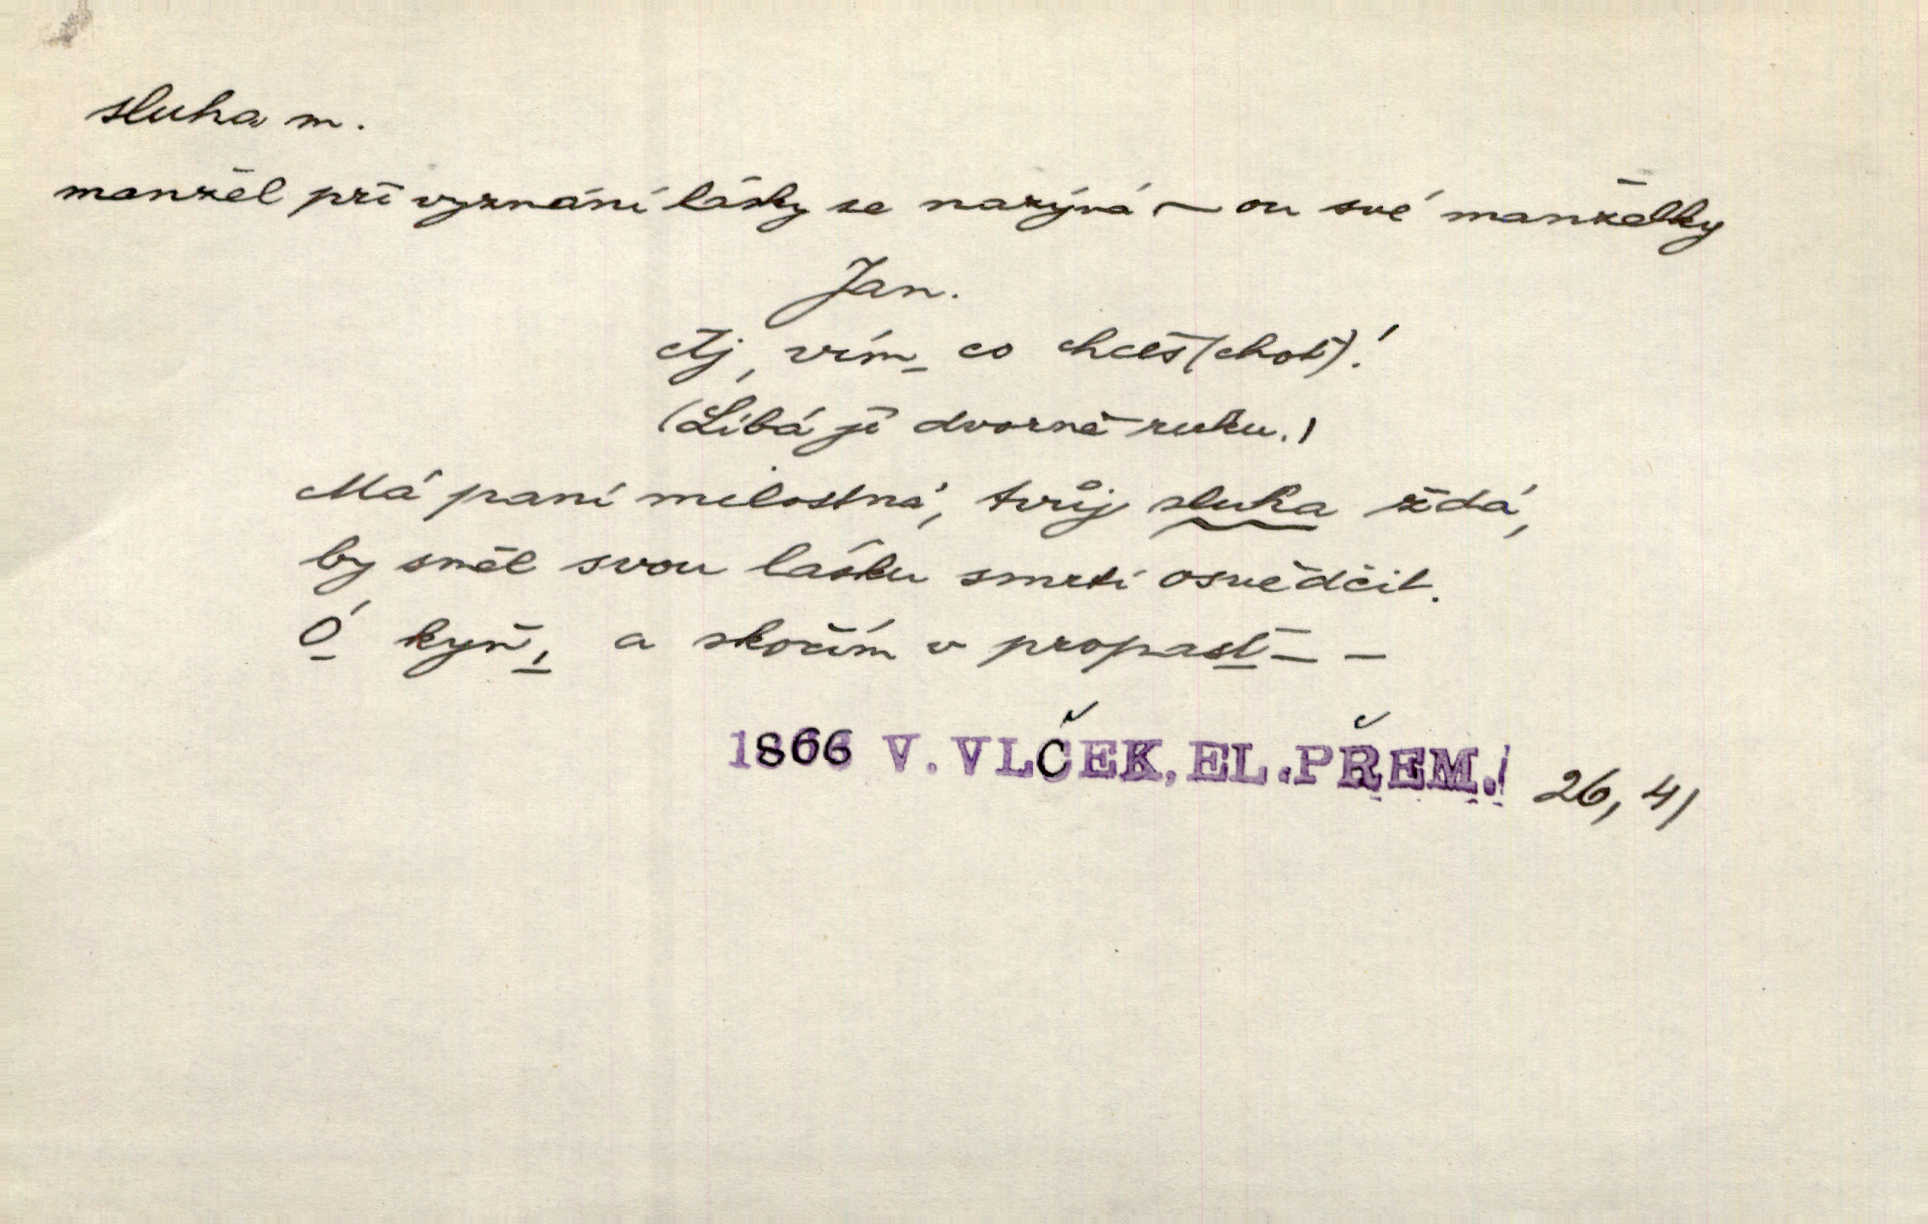 sluha m.
manžel při vyznání lásky se nazývá ~ou své manželky
Jan.
Aj, vím, co chceš (choť)!
(Líbá jí dvorně ruku.)
Má paní milostná, tvůj sluha žádá,
by směl svou lásku smrtí osvědčit.
Ó kyň, a skočím v propast – –
1866 V. VLČEK, EL. PŘEM./ 26, 4/